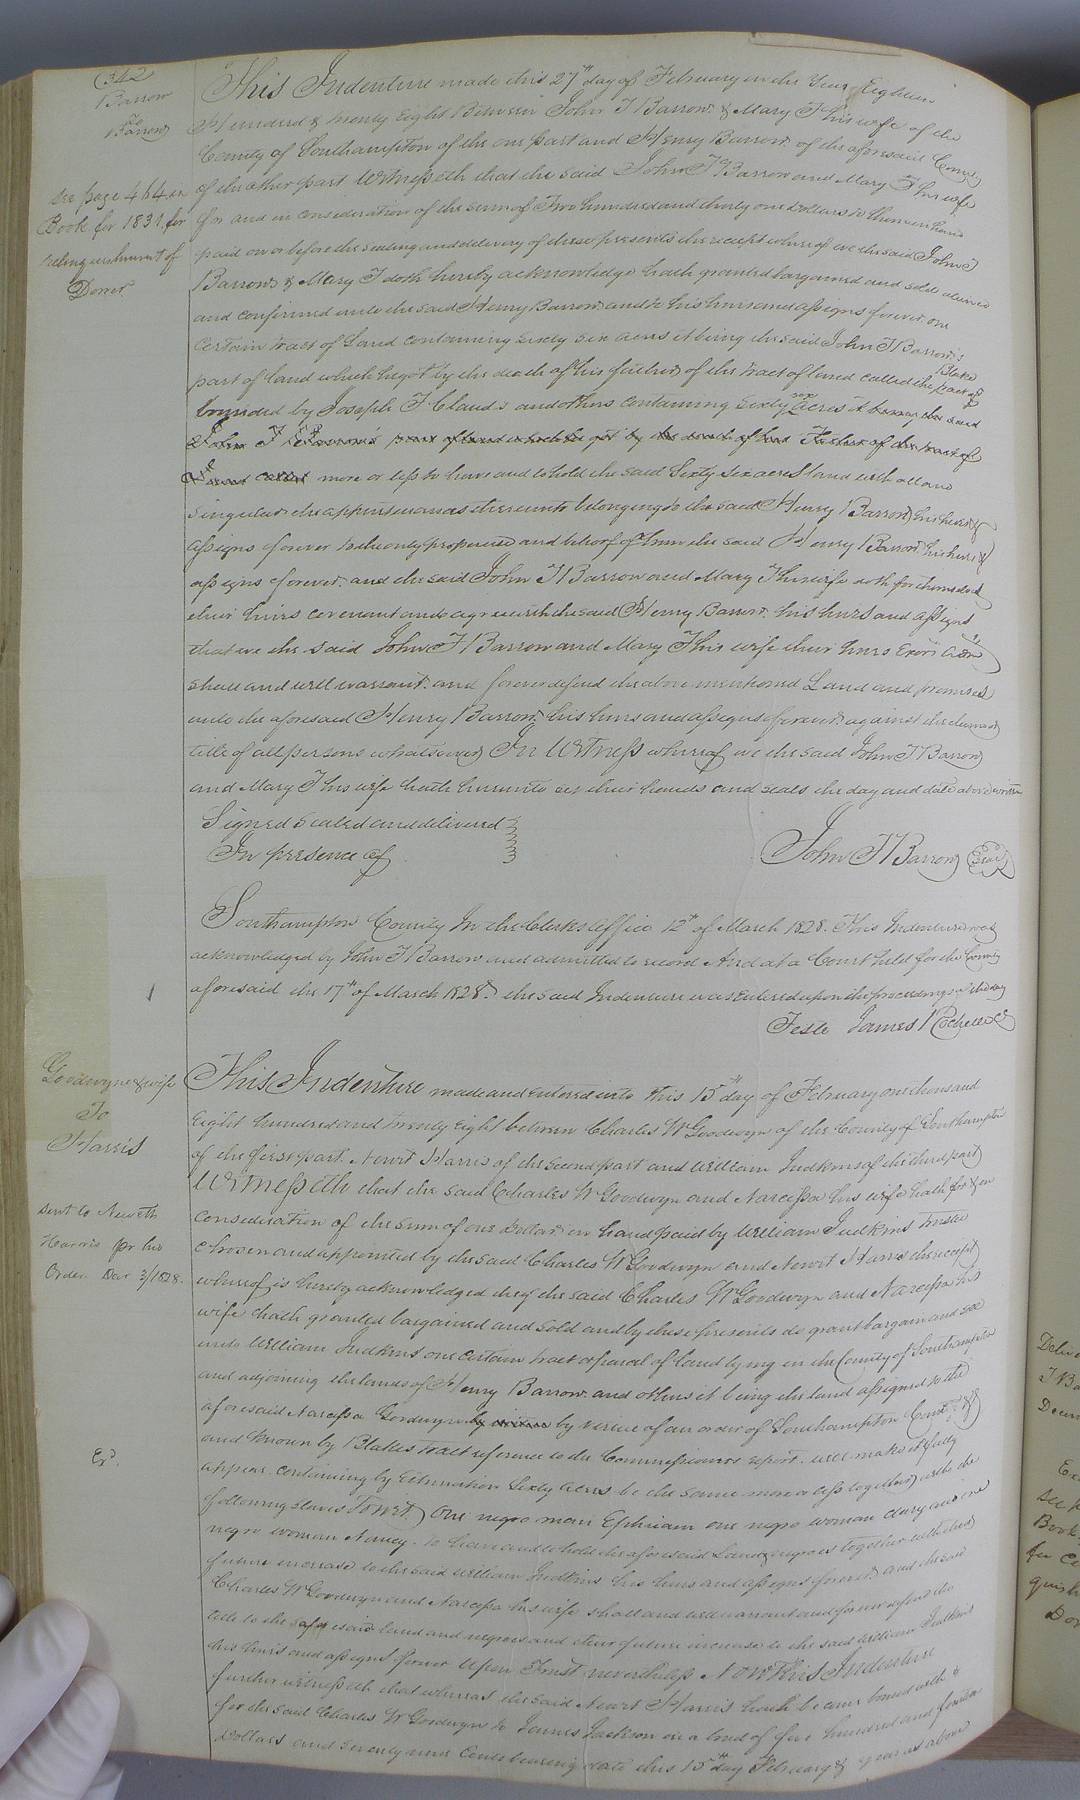 342
Barrow
To
Barrow
see page 464 in
Book for 1831, for
relinquishment of
Dower
This Indenture made this 27th day of February in the Year Eighteen
Hundred & twenty Eight Between John T Barrow & Mary T his wife of the
County of Southampton of the one part and Henry Barrow of the aforesaid County
of the other part Witnesseth that the said John T Barrow and Mary T his wife
for and in consideration of the sum of Two hundred and thirty one Dollars to them in hand
paid on or before the sealing and delivery of these presents the receipt whereof we the said John T
Barrow & Mary T doth hereby acknowledge hath granted bargained and sold aliened
and confirmed unto the said Henry Barrow and to his heirs and assigns forever one
Certain tract of Land containing Sixty six acres it being the said John T Barrow's
part of land which he got by the death of his father of the tract of land called the Blake tract &
bounded by Joseph T Claud's and others containing Sixty six acres it being the said
John T Barrow's part of land which he got by the death of his Father of the tract of
Land called more or less to have and to hold the said Sixty six acres land with all and
singular the appurtenances thereunto belonging to the said Henry Barrow his heirs &
assigns forever to the only proper use and behoof of him the said Henry Barrow his heirs &
assigns forever. and the said John T Barrow and Mary T his wife doth for themselves
their heirs covenant and agree with the said Henry Barrow his heirs and assigns
that we the said John T Barrow and Mary T his wife their heirs Exors Adms
shall and will warrant and forever defend the above mentioned Land and premises
unto the aforesaid Henry Barrow his heirs and assigns forever against the claim or
title of all persons whatsoever In Witness whereof we the said John T Barrow
and Mary T his wife hath hereunto set their hands and seals the day and date above written
Signed Sealed and delivered
In presence of
John T Barrow Seal
Southampton County In the Clerks Office 12th of March 1828. This Indenture was
acknowledged by John T Barrow and admitted to record And at a Court held for the County
aforesaid the 17th of March 1828. the said Indenture was Entered upon the proceedings of the day
Teste James Rochelle C
Goodwyn & wife
To
Harris
sent to Newitt
Harris pr his
Order Dec 3/1828.
Exd.
This Indenture made and entered into this 15th day of February one thousand
Eight hundred and twenty Eight between Charles W Goodwyn of the County of Southampton
of the first part. Newit Harris of the second part and William Judkins of the third part
Witnesseth that the said Charles W Goodwyn and Narcissa his wife hath for & in
consideration of the sum of one Dollar in hand paid by William Judkins trustee
chosen and appointed by the said Charles W Goodwyn and Newit Harris the receipt
whereof is hereby acknowledged they the said Charles W Goodwyn and Narcissa his
wife hath granted bargained and sold and by these presents do grant bargain and sell
unto William Judkins one certain tract or parcel of land lying in the County of Southampton
and adjoining the lands of Henry Barrow and others it being the land assigned to the
aforesaid Narcissa Goodwyn by virtue by virtue of an order of Southampton Court &
and known by Blakes tract reference to the Commissioners report will make it fully
appear containing by Estimation Sixty acres be the same more or less together with the
following slaves Towit One negro man Ephriam one negro woman Mary and one
negro woman Nancy. To have and to hold the aforesaid Land & negroes together with their
future increase to the said William Judkins his heirs and assigns forever and the said
Charles W Goodwyn and Narcissa his wife shall and will warrant and forever defend the
title to the aforesaid land and negroes and their future increase to the said William Judkins
his heirs and assigns forever Upon Trust nevertheless Now This Indenture
further witnesseth that whereas the said Newit Harris hath became bound with &
for the said Charles W Goodwyn to James Jackson in a bond of five hundred and fourteen
Dollars and seventy nine Cents bearing date this 15th day February & year as above